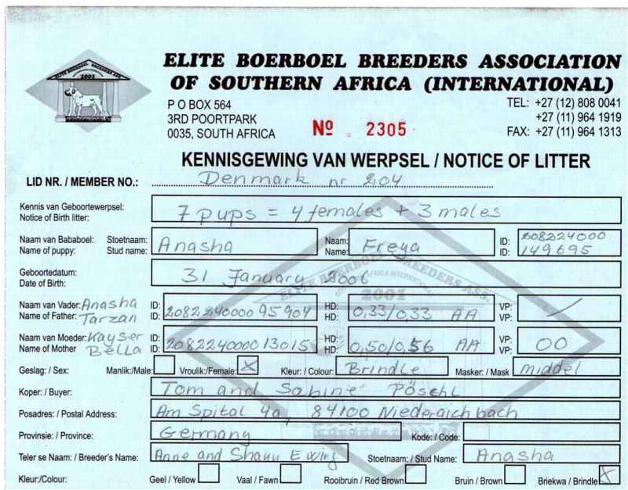 ELITE BOERBOEL BREEDERS ASSOCIATION
OF SOUTHERN AFRICA (INTERNATIONAL)
P O BOX 564
3RD POORTPARK
0035, SOUTH AFRICA
Nº 2305
TEL: +27 (12) 808 0041
+27 (11) 964 1919
FAX: +27 (11) 964 1313
KENNISGEWING VAN WERPSEL / NOTICE OF LITTER
LID NR. / MEMBER NO.: Denmark nr 204
Kennis van Geboortewerpsel:
Notice of Birth litter: 7 pups = 4 females + 3 males
Naam van Bababoel: Stoetnaam: Naam: ID: 608224000
Name of puppy: Stud name: Anasha Name: Freya ID: 149695
Geboortedatum:
Date of Birth: 31 January 2006
Naam van Vader: Anasha ID: 208224000095904 HD: 0,33/0,33 AA VP: /
Name of Father: Tarzan ID: HD: VP:
Naam van Moeder: Kayser ID: 208224000013015 HD: 0,50/0,56 AA VP: 00
Name of Mother Bella ID: HD: VP:
Geslag: / Sex: Manlik:/Male: Vroulik:/Female: X Kleur: / Colour: Brindle Masker: / Mask middel
Koper: / Buyer: Tom and Sabine Pöschl
Posadres: / Postal Address: Am Spital 4a, 84100 Niederaichbach
Provinsie: / Province: Germany Kode: / Code:
Teler se Naam: / Breeder's Name: Anne and Shaun Ewing Stoetnaam: / Stud Name: Anasha
Kleur:/Colour: Geel / Yellow Vaal / Fawn Rooibruin / Red Brown Bruin / Brown Briekwa / Brindle X